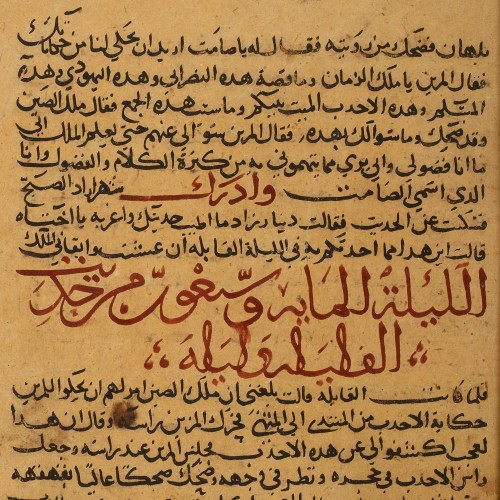 ملهان فضحك من رويته فقال له يا صامت اريد ان تحكي لنا من حكاياتك
فقال المزين يا ملك الزمان وما قصة هذه النصراني وهذه اليهودي وهذه
المسلم وهذه الاحدب الميت بينكم وما سبب هذه الجمع فقال ملك الصين
وقد ضحك وما سوالك بهذه فقال المزين سوالي عنهم حتى يعلم الملك اني
ما انا فضولي واني بري مما يتهموني به من كثرة الكلام والفضول وانا
الذي اسمي الصامت وادرك شهرازاد الصبح
فسكتت عن الحديث فقالت دينارزاد ما اطيب حديثك واعذبه يا اختاه
قالت اين هذا مما احدثكم به في الليلة القابله ان عشت وابقاني الملك
الليلة المايه وسبعون من حديث
الف ليله وليله
فلما كانت القابلة قالت بلغني ان ملك الصين امرهم ان يحكوا للمزين
حكاية الاحدب من المبتدى الى المنتهى فحرك المزين راسه وقال ان هذا
لعجب اكشفوا لي عن هذه الاحدب فجلس المزين عند راسه وجعل
راس الاحدب في حجره ونظر في وجهه وضحك ضحكا عاليا بقهقهه